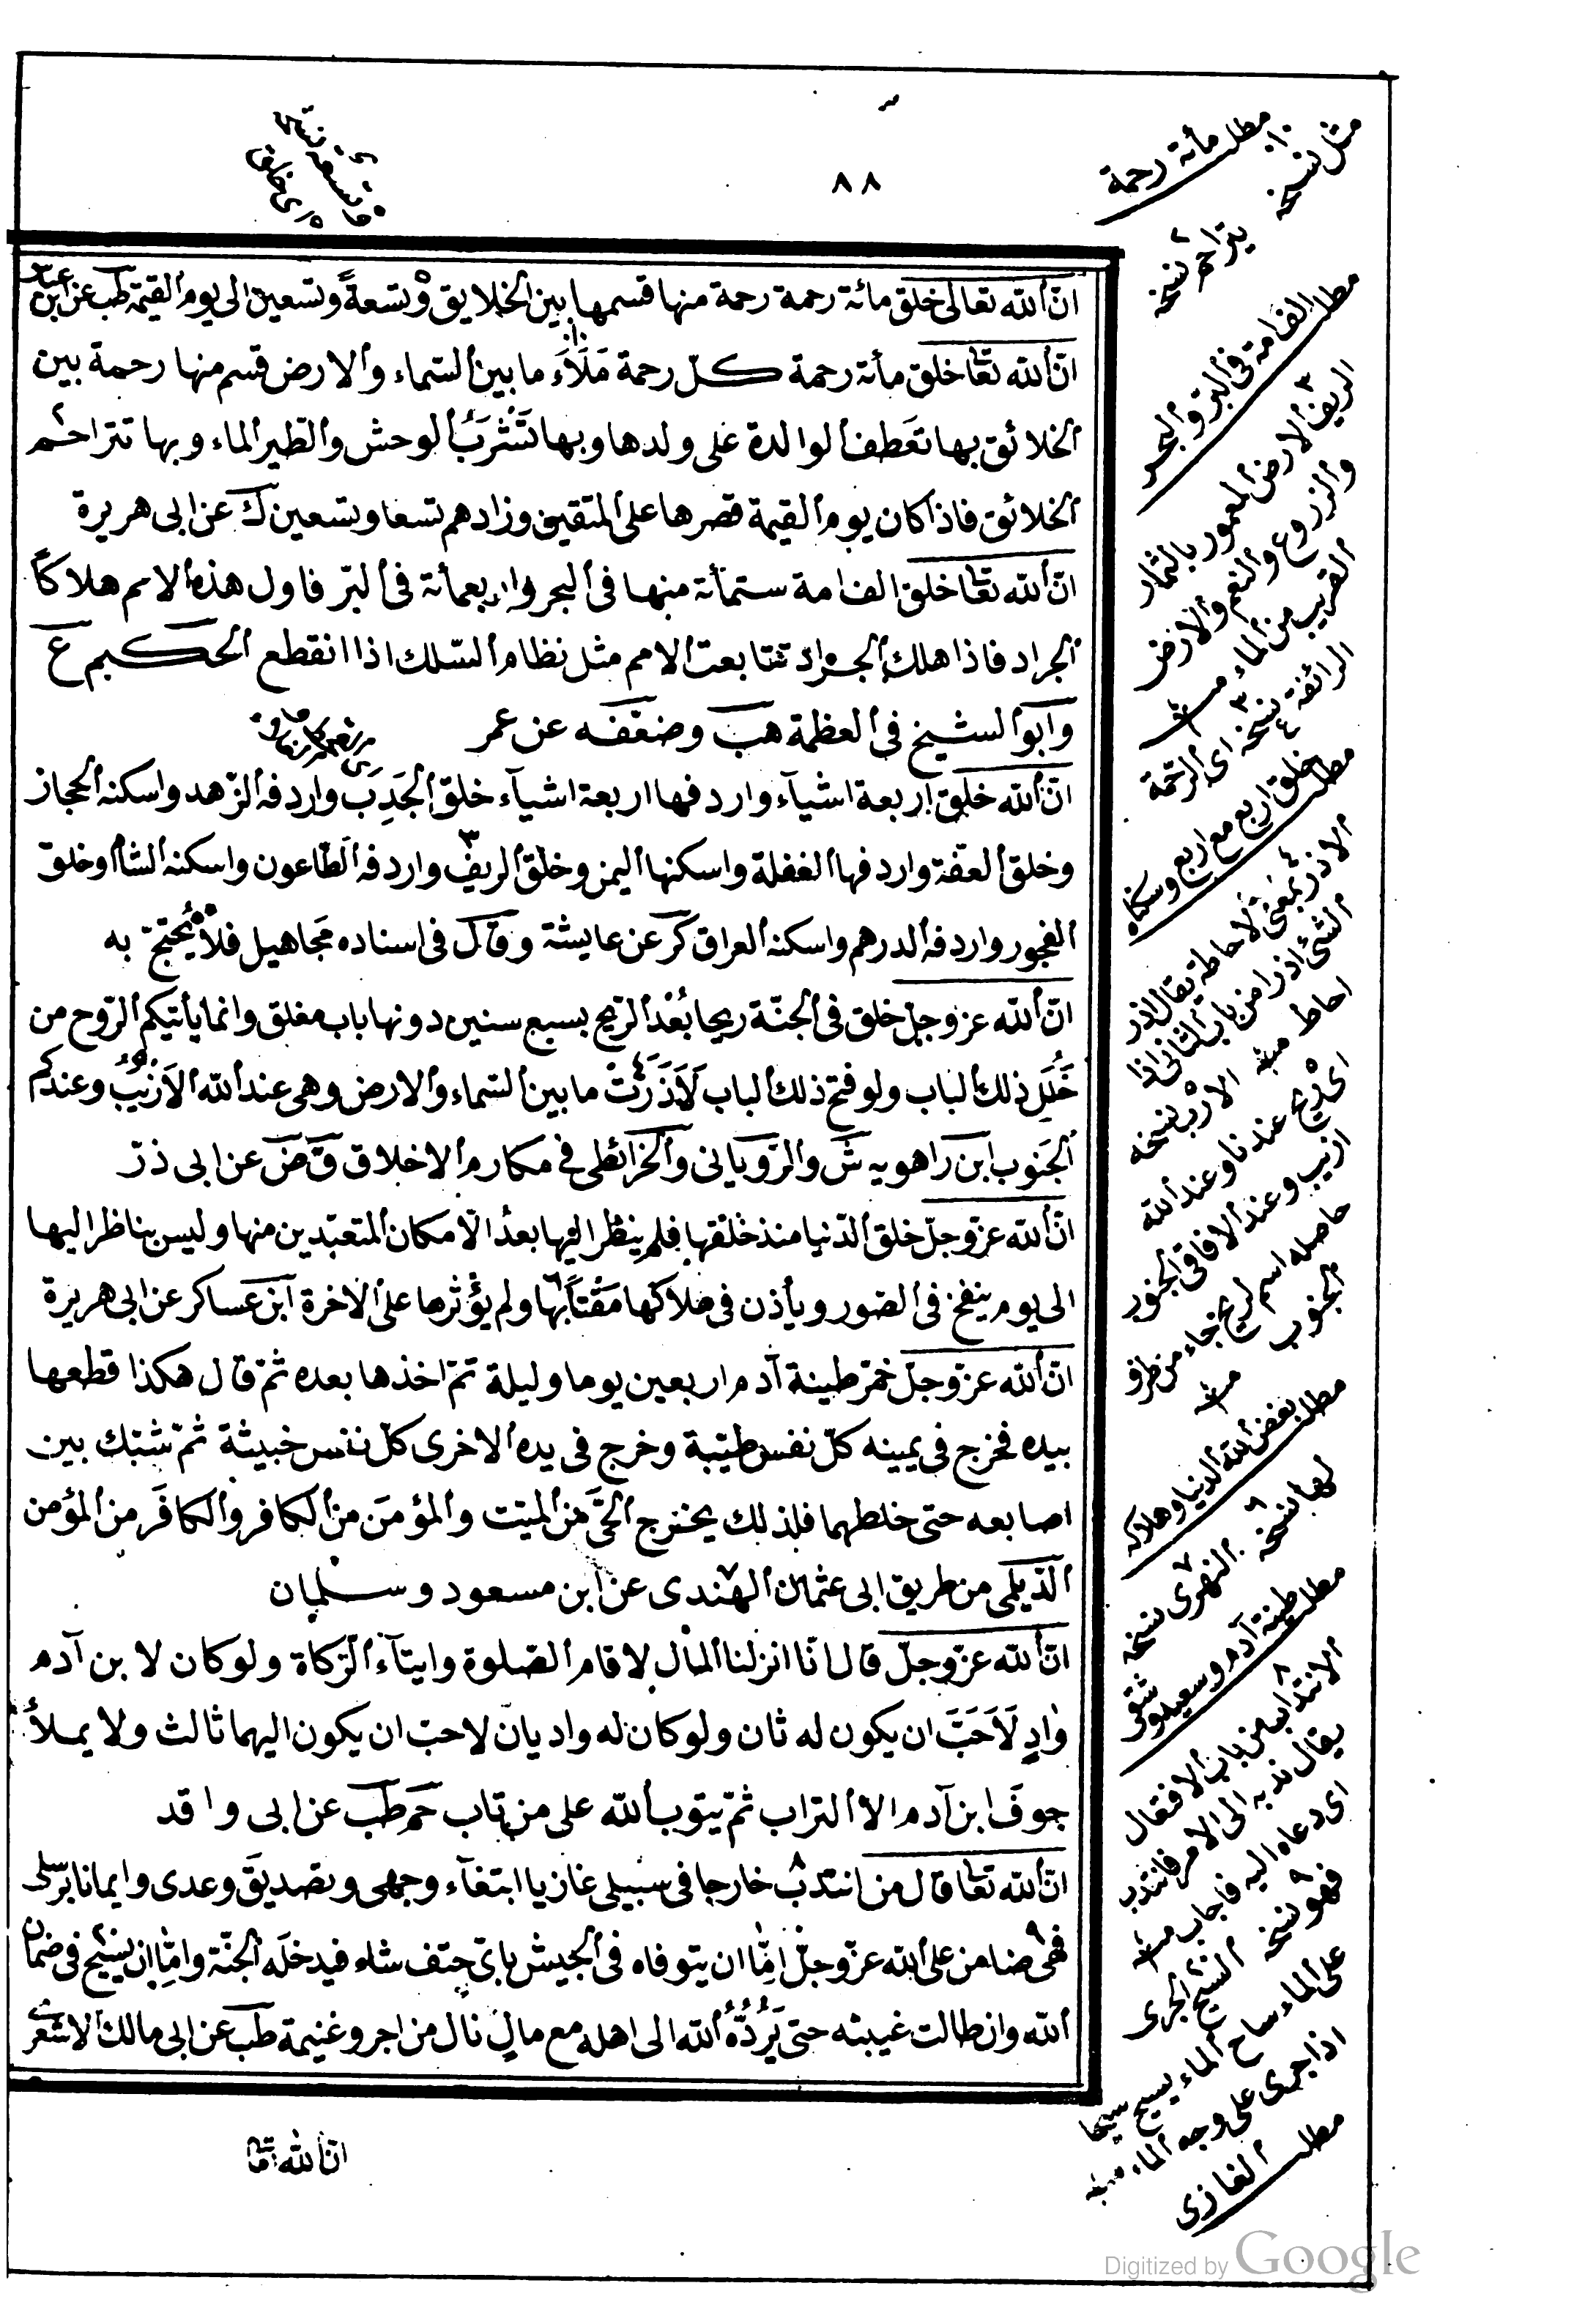 ٨٨
انّ الله تعالى خلق مائة رحمة رحمة منها قسمها بين الخلايق وتسعةً وتسعين الى يوم القيمة طب عن ابن عباس
انّ الله تعا خلق مأئة رحمة كلّ رحمة مَلَاءَ ما بين السّماء والارض قسم منها رحمة بين
الخلائق بها تعَطف الوالدة على ولدها وبها تَشْرَبُ الوحش والطير الماء وبها تتراحم
الخلائق فاذا كان يوم القيمة قصرها على المتقين وزادهم تسعا وتسعين ك عن ابى هريرة
انّ الله تعا خلق الف امة ستمأئة منها فى البحر واربعمأئة فى البرّ فاول هذه الامم هلاكاً
الجراد فاذا هلك الجراد تتابعت الامم مثل نظام السّلك اذا انقطع الحكيم ع
وابو الشيخ فى العظمة هب وضعّفه عن عمر
انّ الله خلق اربعة اشياء واردفها اربعة اشياء خلق الجَدِبَ واردفه الزّهد واسكنه الحجاز
وخلق العفّة واردفها الغفلة واسكنها اليمن وخلق الريف واردفه الطّاعون واسكنه الشأم وخلق
الفجور واردفه الدرهم واسكنه العراق كر عن عايشة وقال فى اسناده مجَاهيل فلا يُحتجّ به
انّ الله عز وجل خلق فى الجنّة ريحا بُعْد الرّيح بسبع سنين دونها باب مغلق وانما يأتيكم الرّوح من
خَلَلِ ذلك الباب ولو فتح ذلك الباب لَاَذَرَتْ ما بين السّماء والارض وهى عند الله الاَزْيَبُ وعندكم
الجَنوب ابن راهويه ش والرّويانى والخرائطى فى مكارم الاخلاق ق ض عن ابى ذرّ
انّ الله عزّ وجلّ خلق الدّنيا منذ خلقها فلم ينظر اليها بعدُ الّا مكان المتعبّدين منها وليس بناظر اليها
الى يوم ينفخ فى الصّور ويأذن فى هلاكها مَقْتاً بها ولم يؤثرها على الاخرة ابن عساكر عن ابى هريرة
انّ الله عزّ وجلّ خمّر طينة آدم اربعين يوما وليلة ثمّ اخذها بعده ثمّ قال هكذا قطعها
بيده فخرج فى يمينه كلّ نفس طيّبة وخرج فى يده الاخرى كلّ نفس خبيثة ثمّ شبّك بين
اصابعه حتى خلطهما فلذلك يخرج الحىَّ من الميّت والمؤمنَ من الكافر والكافَر من المؤمن
الدّيلمى من طريق ابى عثمان الهندى عن ابن مسعود وسلمان
انّ الله عزّ وجلّ قال انّا انزلنا المال لاقام الصّلوة وايتآء الزّكاة ولو كان لابن آدم
وادٍ لَاَحَبَّ ان يكون له ثان ولو كان له واديان لاحبّ ان يكون اليهما ثالث ولا يملأ
جوفَ ابن آدم الا التراب ثمّ يتوب الله على من تاب حم طب عن ابى واقد
انّ الله تعا قال من انتدب خارجا فى سبيلى غازيا ابتغآء وجهى وتصديقَ وعدى وايمانا برسلى
فهى ضامن على الله عزّ وجلّ امّا ان يتوفاه فى الجيش باىّ حتف شاء فيدخلَه الجنّة وامّا ان يسيح فى ضمان
الله وان طالت غيبته حتى يَرُدُّهُ الله الى اهله مع مالٍ نال من اجر وغنيمة طب عن ابى مالك الاشعرى
انّ الله تعا
مطلب مأئة رحمة
مثل نسخه
يتراحم نسخه
مطلب الف امة فى البرّ والبحر
الريف الارض المعمور بالثمار
والزروع والنعم والارض
القريب من الماء
الرائفة نسخه اى الرّحمة
مطلب خلق اربع مع اربع وسكناه
الاذر بمعنى الاحاطة يقال اذر
الشئ اذرا من باب الثانى اذا
احاط منه
الازب نسخه
اى ريح عندنا وعند الله
ازيب وعند الافاقى الجنوب
حاصله اسم لريح جاء من طرف
الجنوب منه
مطلب بغض الله الدنيا وهلاكه
لها نسخه
النهدى نسخه
مطلب طينة آدم وسعيد وشقى
الانتداب من باب الافتعال
يقال ندبه الى الامر فانتدب
اى دعاه اليه فاجاب منه
فهو نسخه
السّيح الجرى
على الماء ساح الماء يسيح سيحا
اذا جرى على وجه الماء منه
مطلب الغازى
Digitized by Google